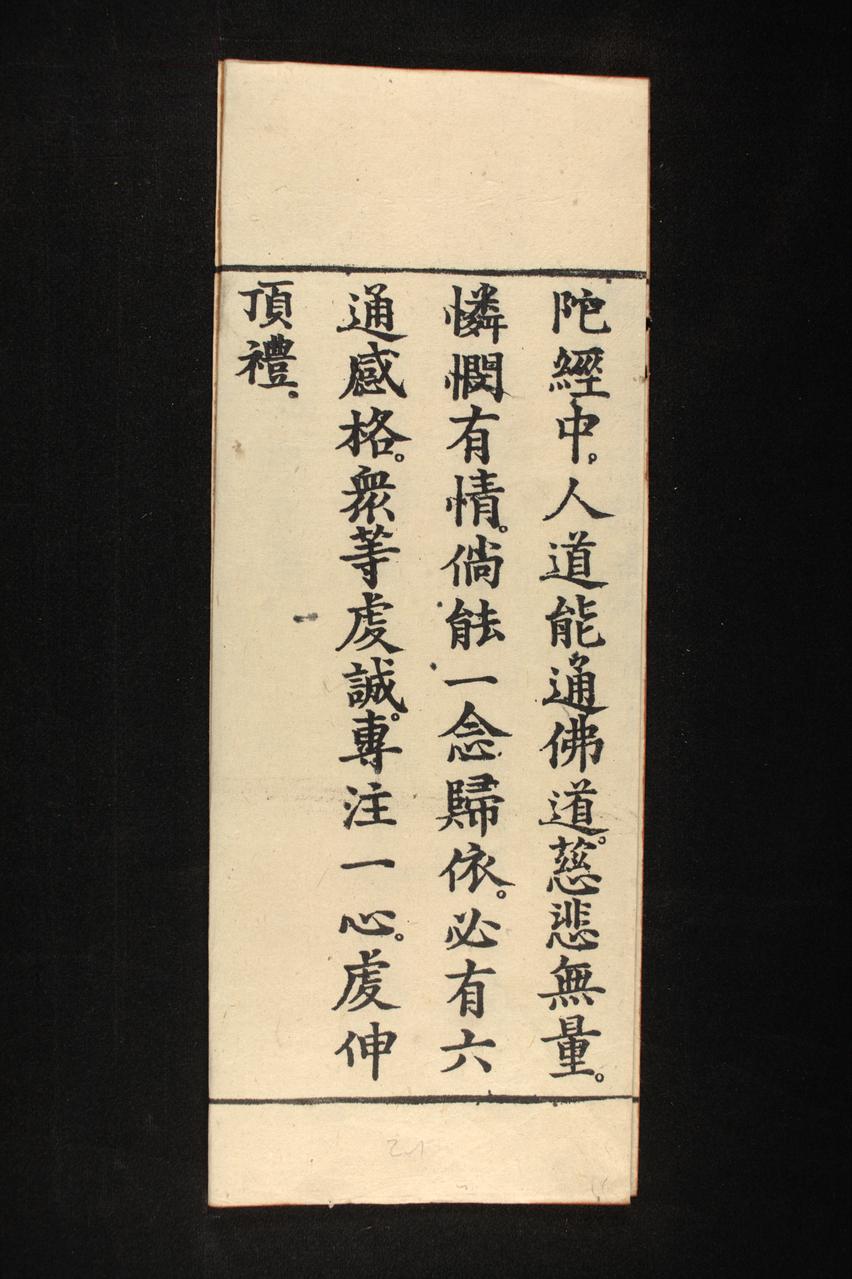 陀經中。人道能通佛道。慈悲無量。
憐憫有情。倘能一念歸依。必有六
通感格。衆等虔誠。專注一心。虔伸
頂禮。